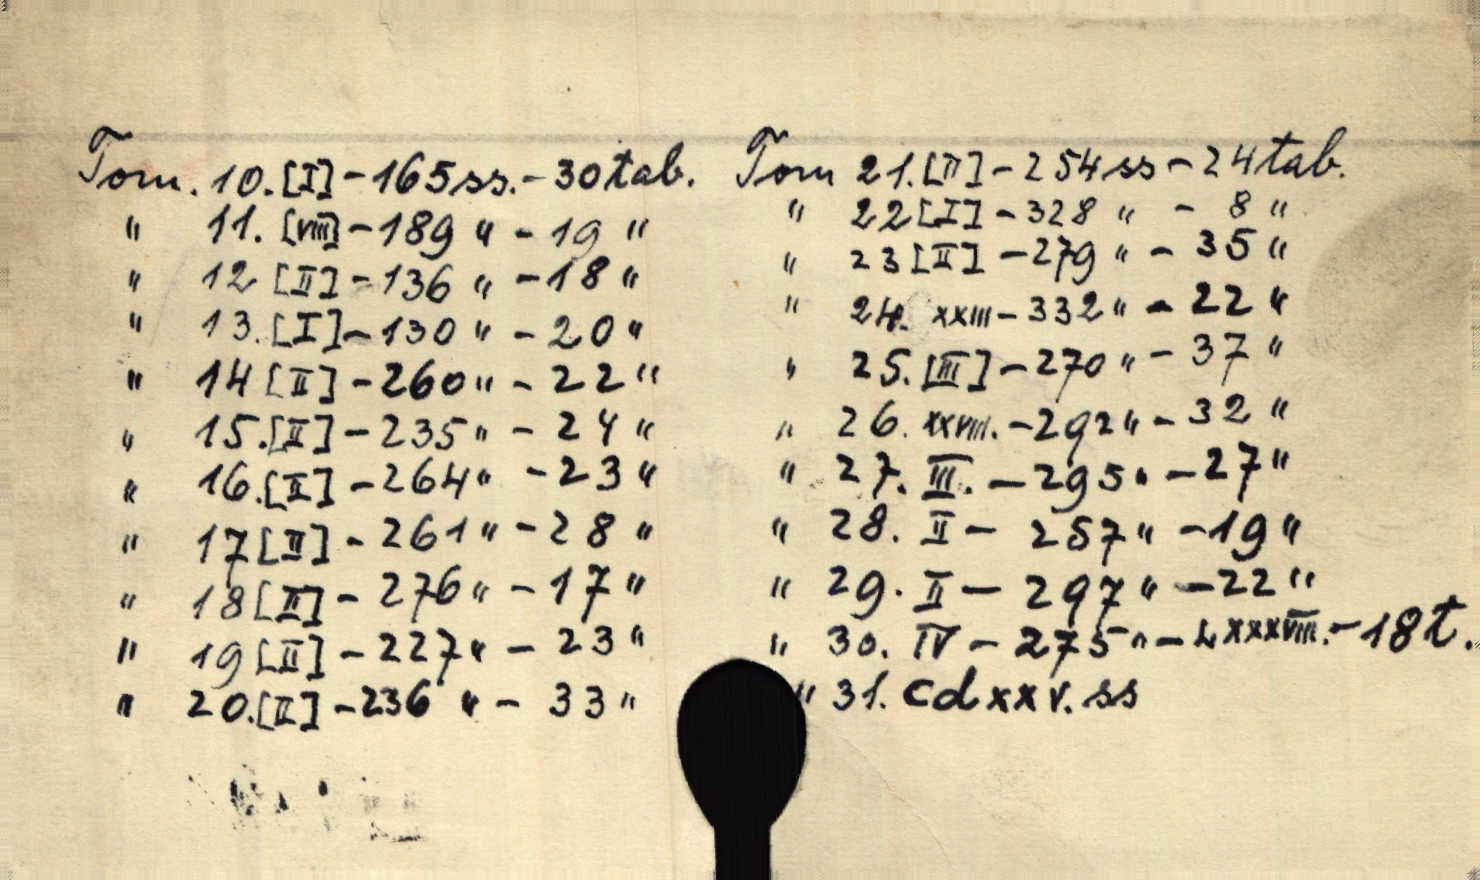 Tom. 10. [I] - 165 ss. - 30 tab.
" 11. [VIII] - 189 " - 19 "
" 12 [II] - 136 " - 18 "
" 13. [I] - 130 " - 20 "
" 14 [II] - 260 " - 22 "
" 15. [II] - 235 " - 24 "
" 16. [II] - 264 " - 23 "
" 17 [II] - 261 " - 28 "
" 18 [II] - 276 " - 17 "
" 19 [II] - 227 " - 23 "
" 20. [II] - 236 " - 33 "
Tom 21. [II] - 254 ss - 24 tab.
" 22 [I] - 328 " - 8 "
" 23 [II] - 279 " - 35 "
" 24. XXIII - 332 " - 22 "
" 25. [III] - 270 " - 37 "
" 26. XXVIII. - 292 " - 32 "
" 27. III. - 295 " - 27 "
" 28. II - 257 " - 19 "
" 29. II - 297 " - 22 "
" 30. IV - 275 " - LXXXVIII. - 18 t.
" 31. cdxxv. ss